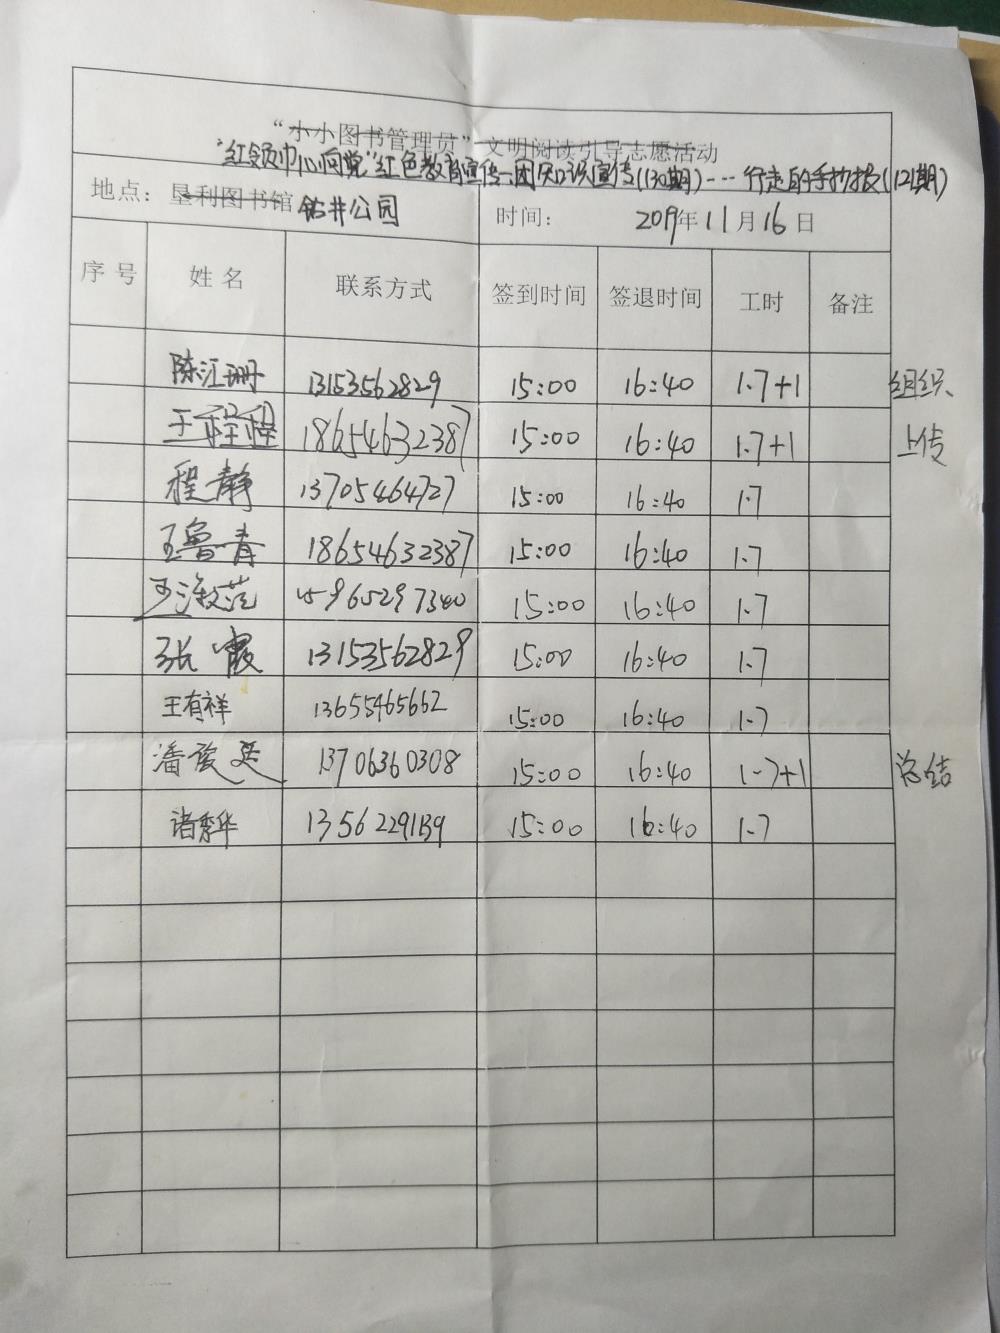 “小小图书管理员”文明阅读引导志愿活动
“红领巾心向党”红色教育宣传—团知识宣传(130期)---行走的手抄报(121期)
地点：垦利图书馆 钻井公园 时间： 2019年11月16日
序号 姓名 联系方式 签到时间 签退时间 工时 备注
陈江珊 13153562829 15:00 16:40 1.7+1 组织
王程程 18654632387 15:00 16:40 1.7+1 上传
程静 13705464727 15:00 16:40 1.7
王鲁青 18654632387 15:00 16:40 1.7
15965297340 15:00 16:40 1.7
张霞 13153562829 15:00 16:40 1.7
王有祥 13655465662 15:00 16:40 1.7
潘 延 13706360308 15:00 16:40 1.7+1 总结
诸秀华 13562291139 15:00 16:40 1.7